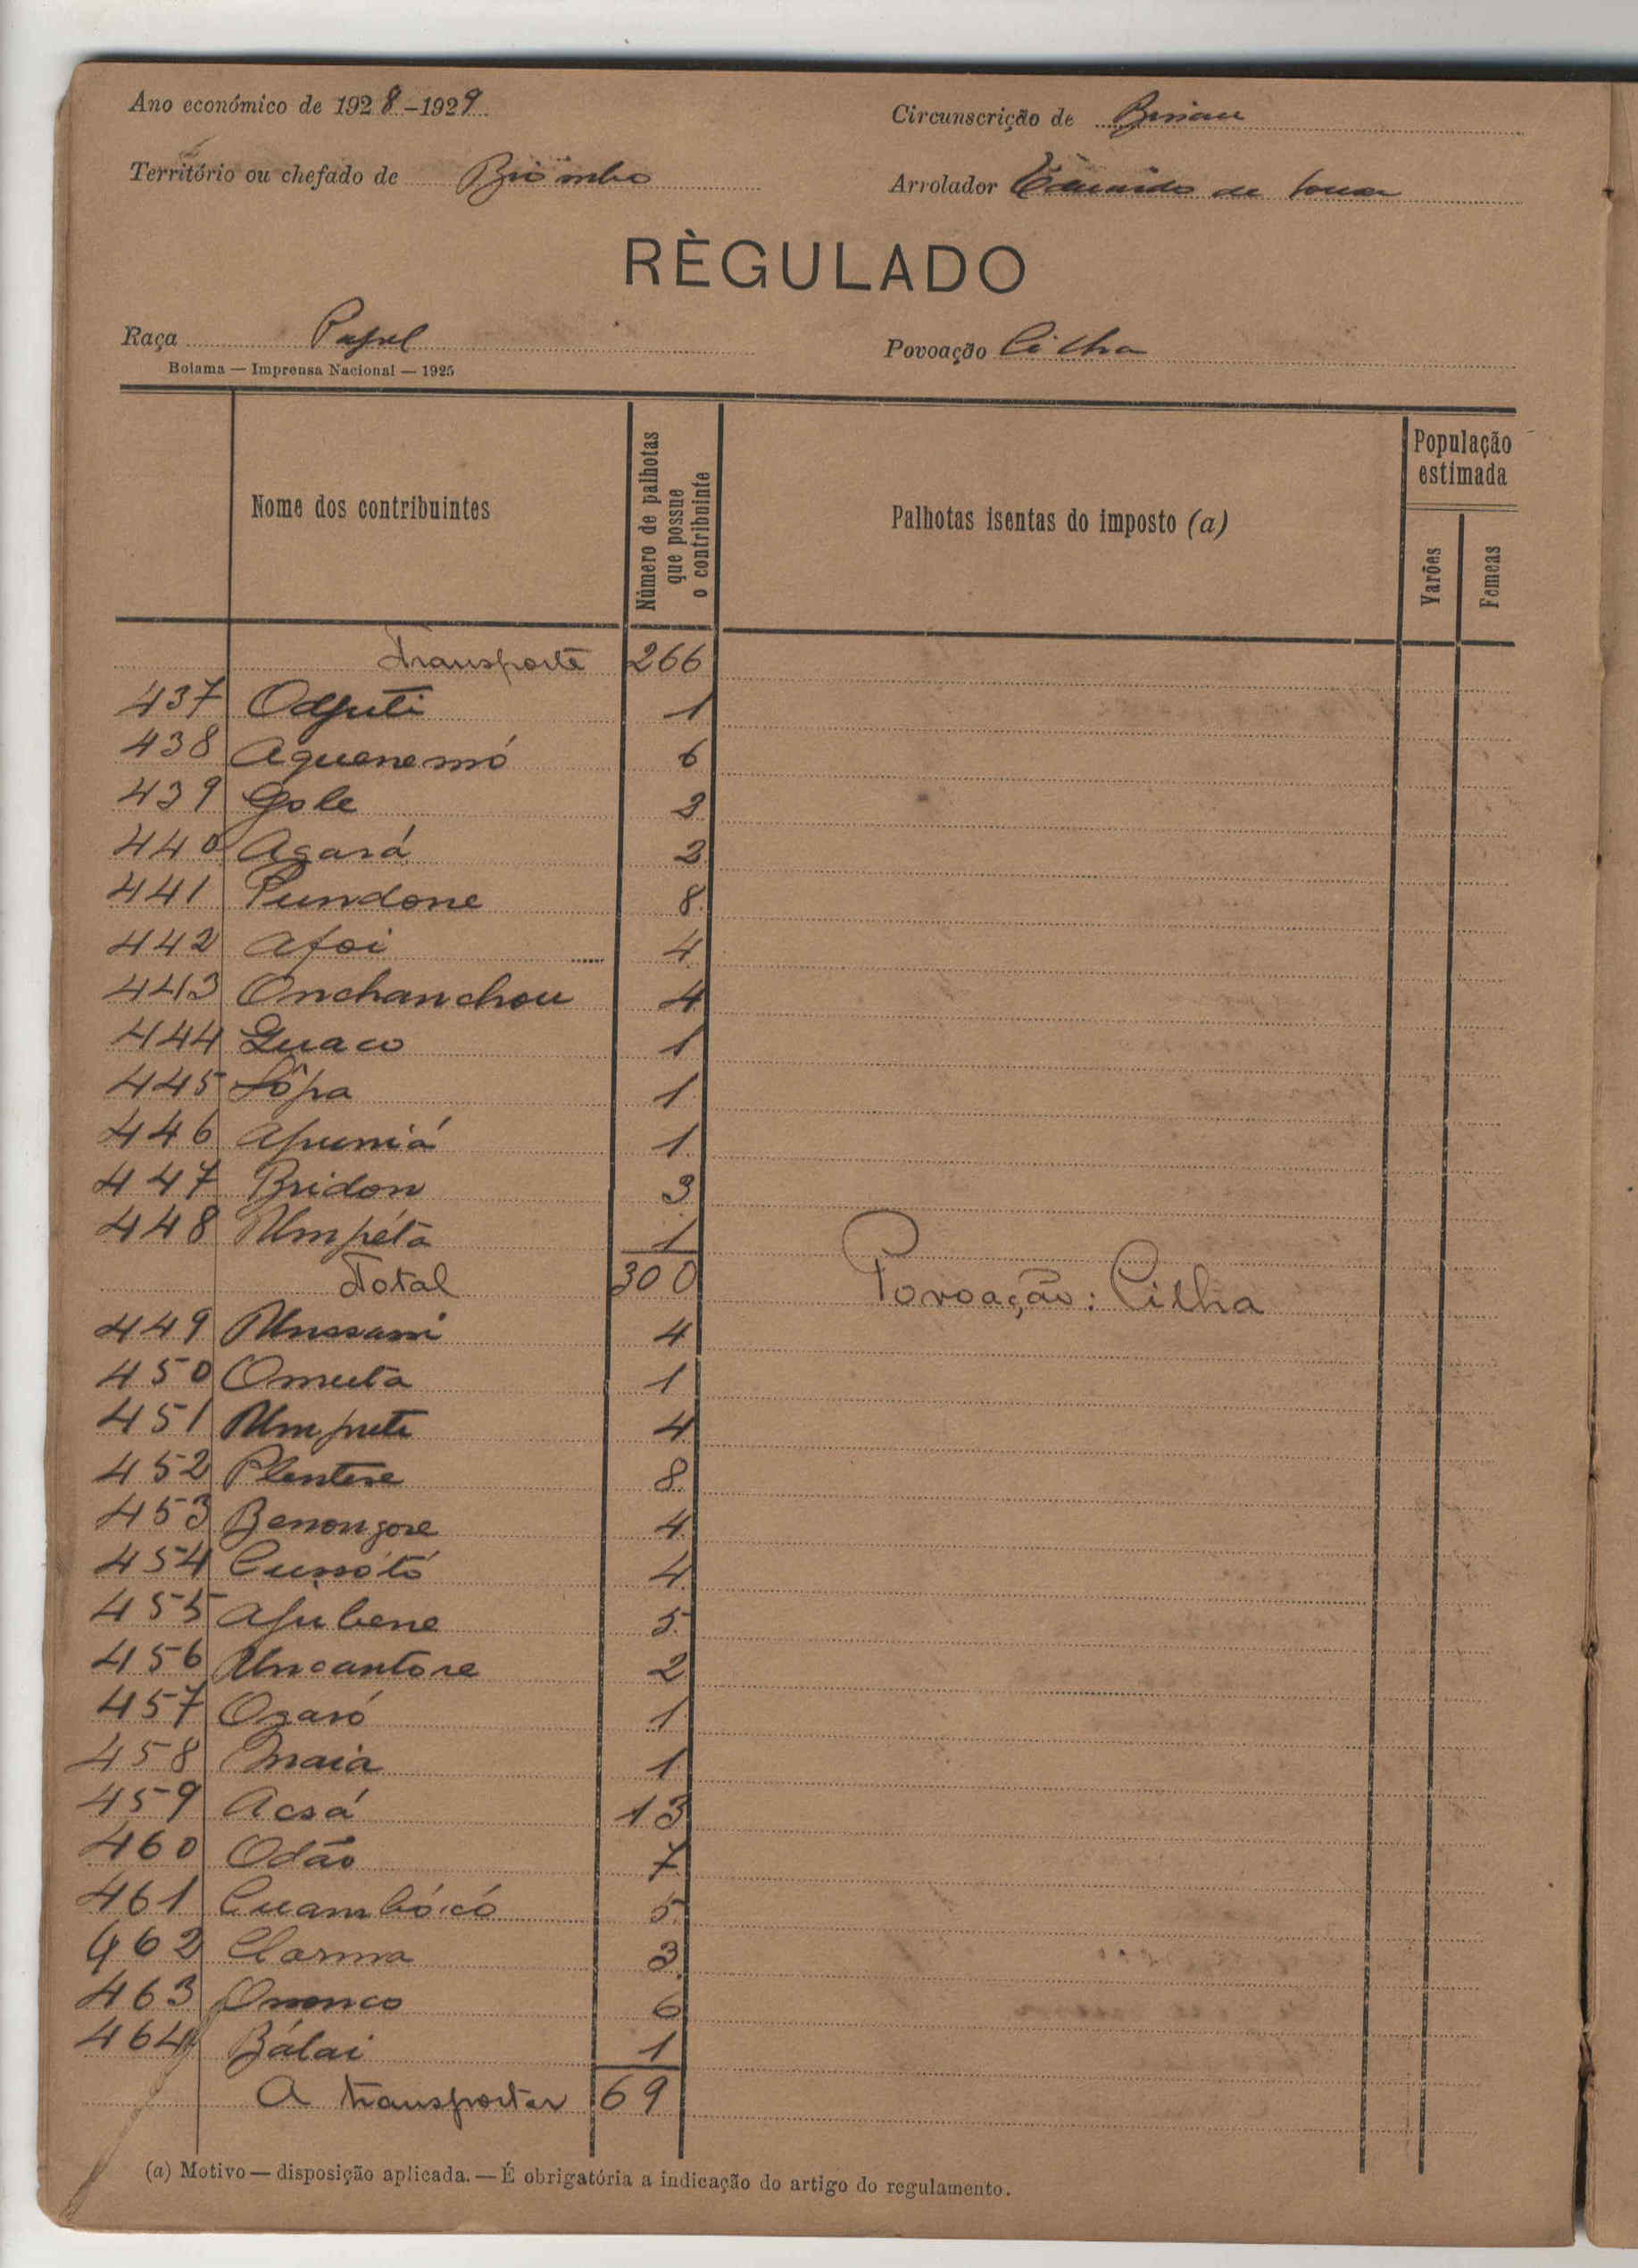 Ano económico de 1928-1929
Circunscrição de Bissau
Território ou chefado de Biombo
Arrolador Eduardo de Sousa
RÈGULADO
Raça Papel
Povoação Cilha
Bolama — Imprensa Nacional — 1925
Nome dos contribuintes
Número de palhotas que possue o contribuinte
Palhotas isentas do imposto (a)
População estimada
Varões
Femeas
Transporte 266
437 Odjuti 1
438 Aquenemó 6
439 Gole 2
440 Agará 2
441 Pundone 8
442 Afoi 4
443 Onchanchou 4
444 Quaco 1
445 Lôpa 1
446 Apumiá 1
447 Bridon 3
448 Umpéta 1
Total 300
Povoação: Cilha
449 Unssumi 4
450 Omuta 1
451 Umpute 4
452 Plentene 8
453 Benongore 4
454 Cussótó 4
455 Apubene 5
456 Uncantore 2
457 Ogaró 1
458 Onaia 1
459 Acsá 13
460 Odão 7
461 Cuambócó 5
462 Clorma 3
463 Ononco 6
464 Bálai 1
A transportar 69
(a) Motivo — disposição aplicada. — É obrigatória a indicação do artigo do regulamento.